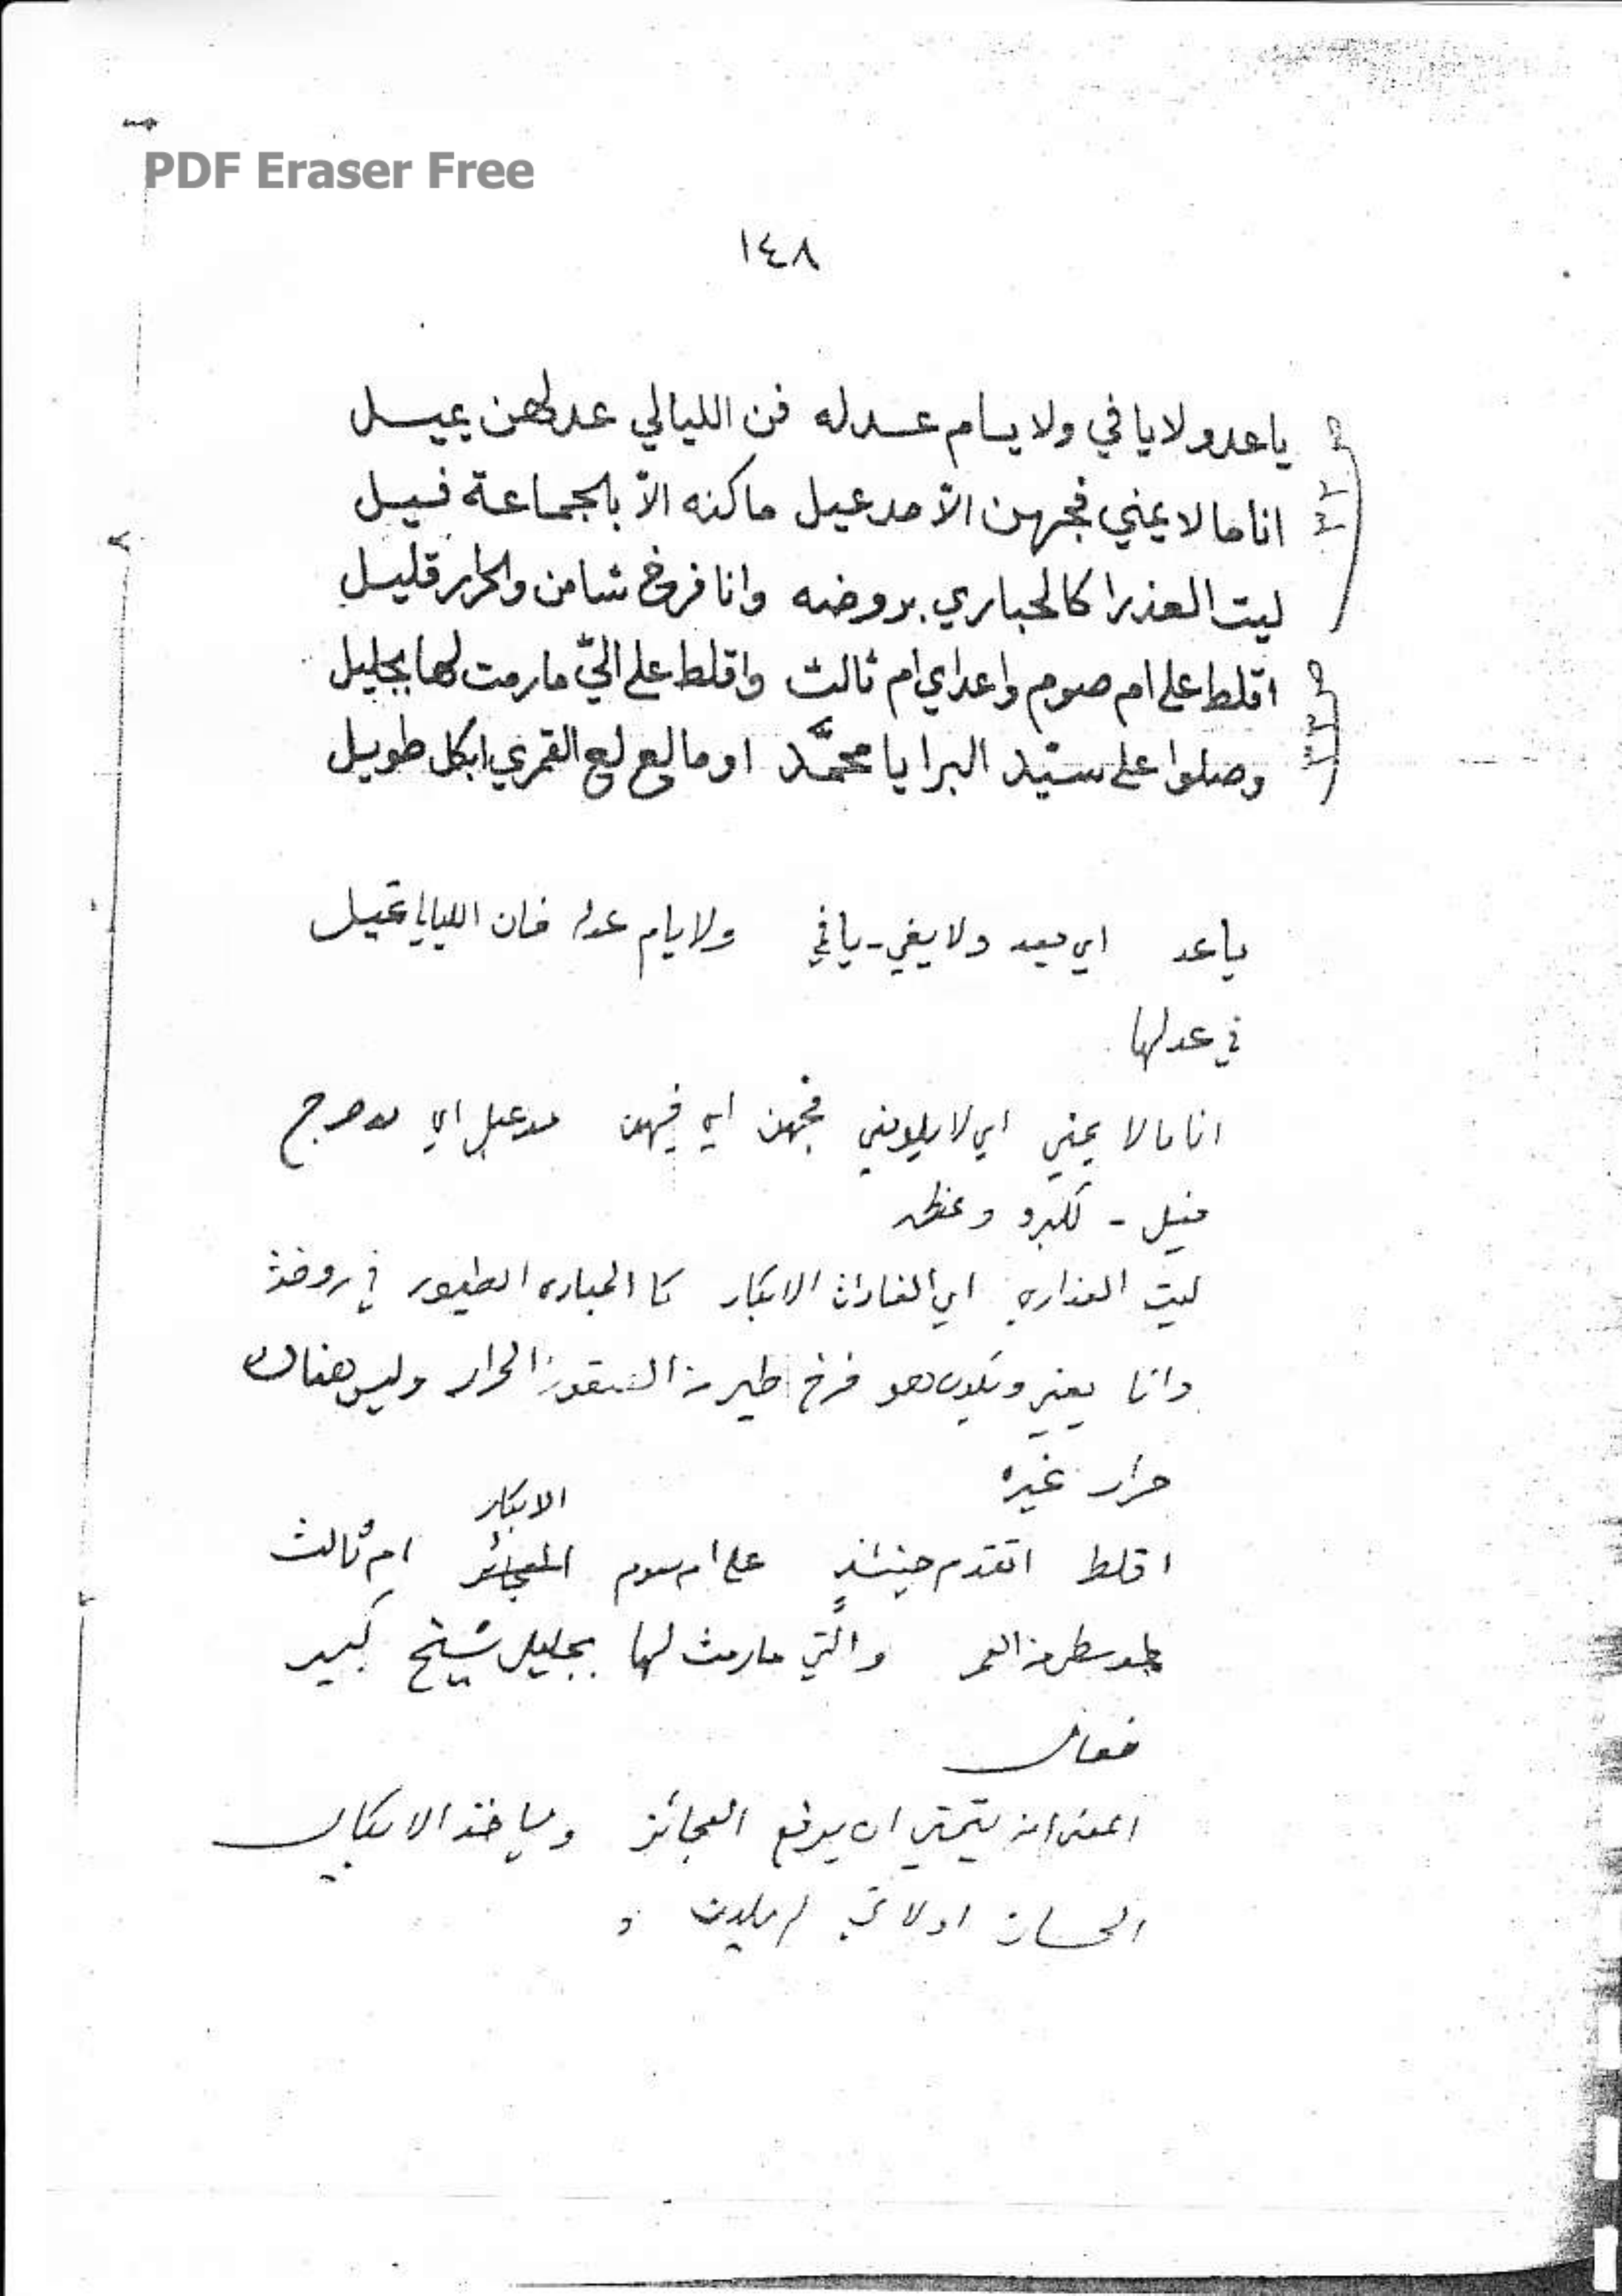 PDF Eraser Free
١٤٨
ياعدو لا يافي ولا يسام عدله فن الليالي عدلهن يميل
انا ما لا يمني فجهن الّا مدعيل ماكنه الّا بالجماعة فيل
ليت العذرا كالحباري بروضه وانا فرخ شامن والحرار قليل
اقلط على ام صوم واعداي ام ثالث واقلط على الّي مارمت لها بجليل
وصلوا على سيّد البرايا محمّد او ما لع لع القمري ابكل طويل
ياعد اي يعد ولا يفي - يافي ولا يام عدله فان الليالي تميل
في عدلها
انا ما لا يمني اي لا يلومني فجهن اي فيهن مدعبل اي مدحرج
فيل - لكبره وعظمه
ليت العذاري اي الفتاوات الابكار كا الحباره الطيور في روضة
وانا يعني ويكون هو فرخ طير من الصقور الحرار وليس هناك
حرار غيره
الابكار
اقلط اتقدم حينئذٍ على ام سوم العجائز ام ثالث
من العمر والتي مارمت لها بجليل شيخ كبير
فعال
المعنى انه يتمنى ان يدفع العجائز وياخذ الابكار
الحسان